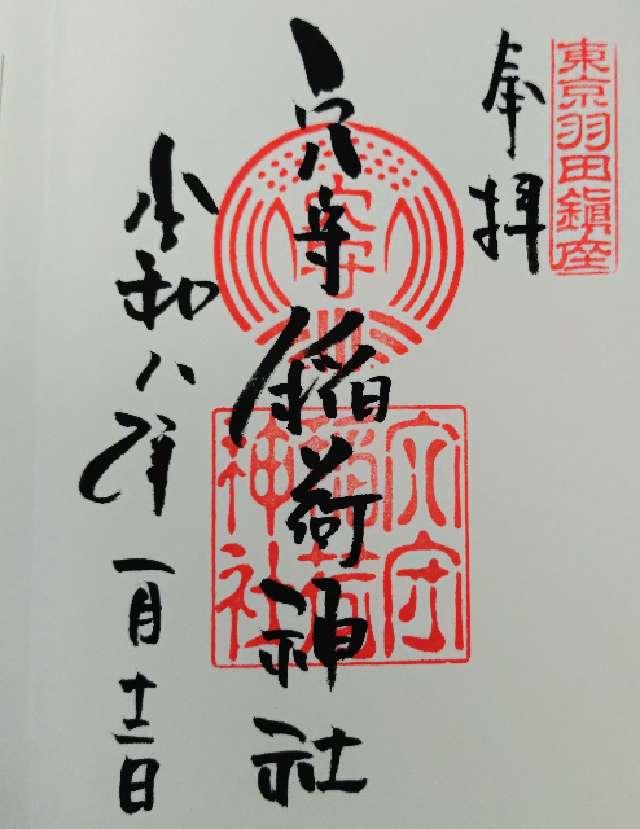 東京羽田鎮座
奉拝
穴守稲荷神社
穴守
穴守稲荷神社
令和八年一月十二日